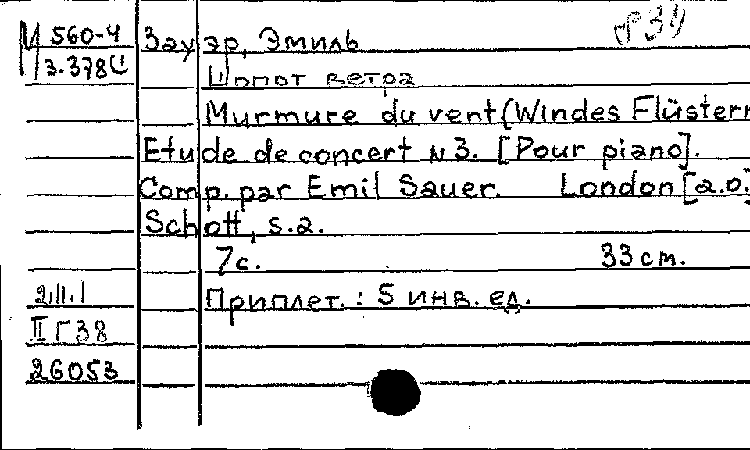 М 560-4 Зауэр, Эмиль
З.378
Шопот ветра
Murmure du vent (Windes Flüstern
Etude de concert N 3. [Pour piano].
Comp. par Emil Sauer. London [a.o.]
Schott, s.a.
7 с. 33 cm.
2.II.1 Приплет.: 5 инв. ед.
II Г 38
26053